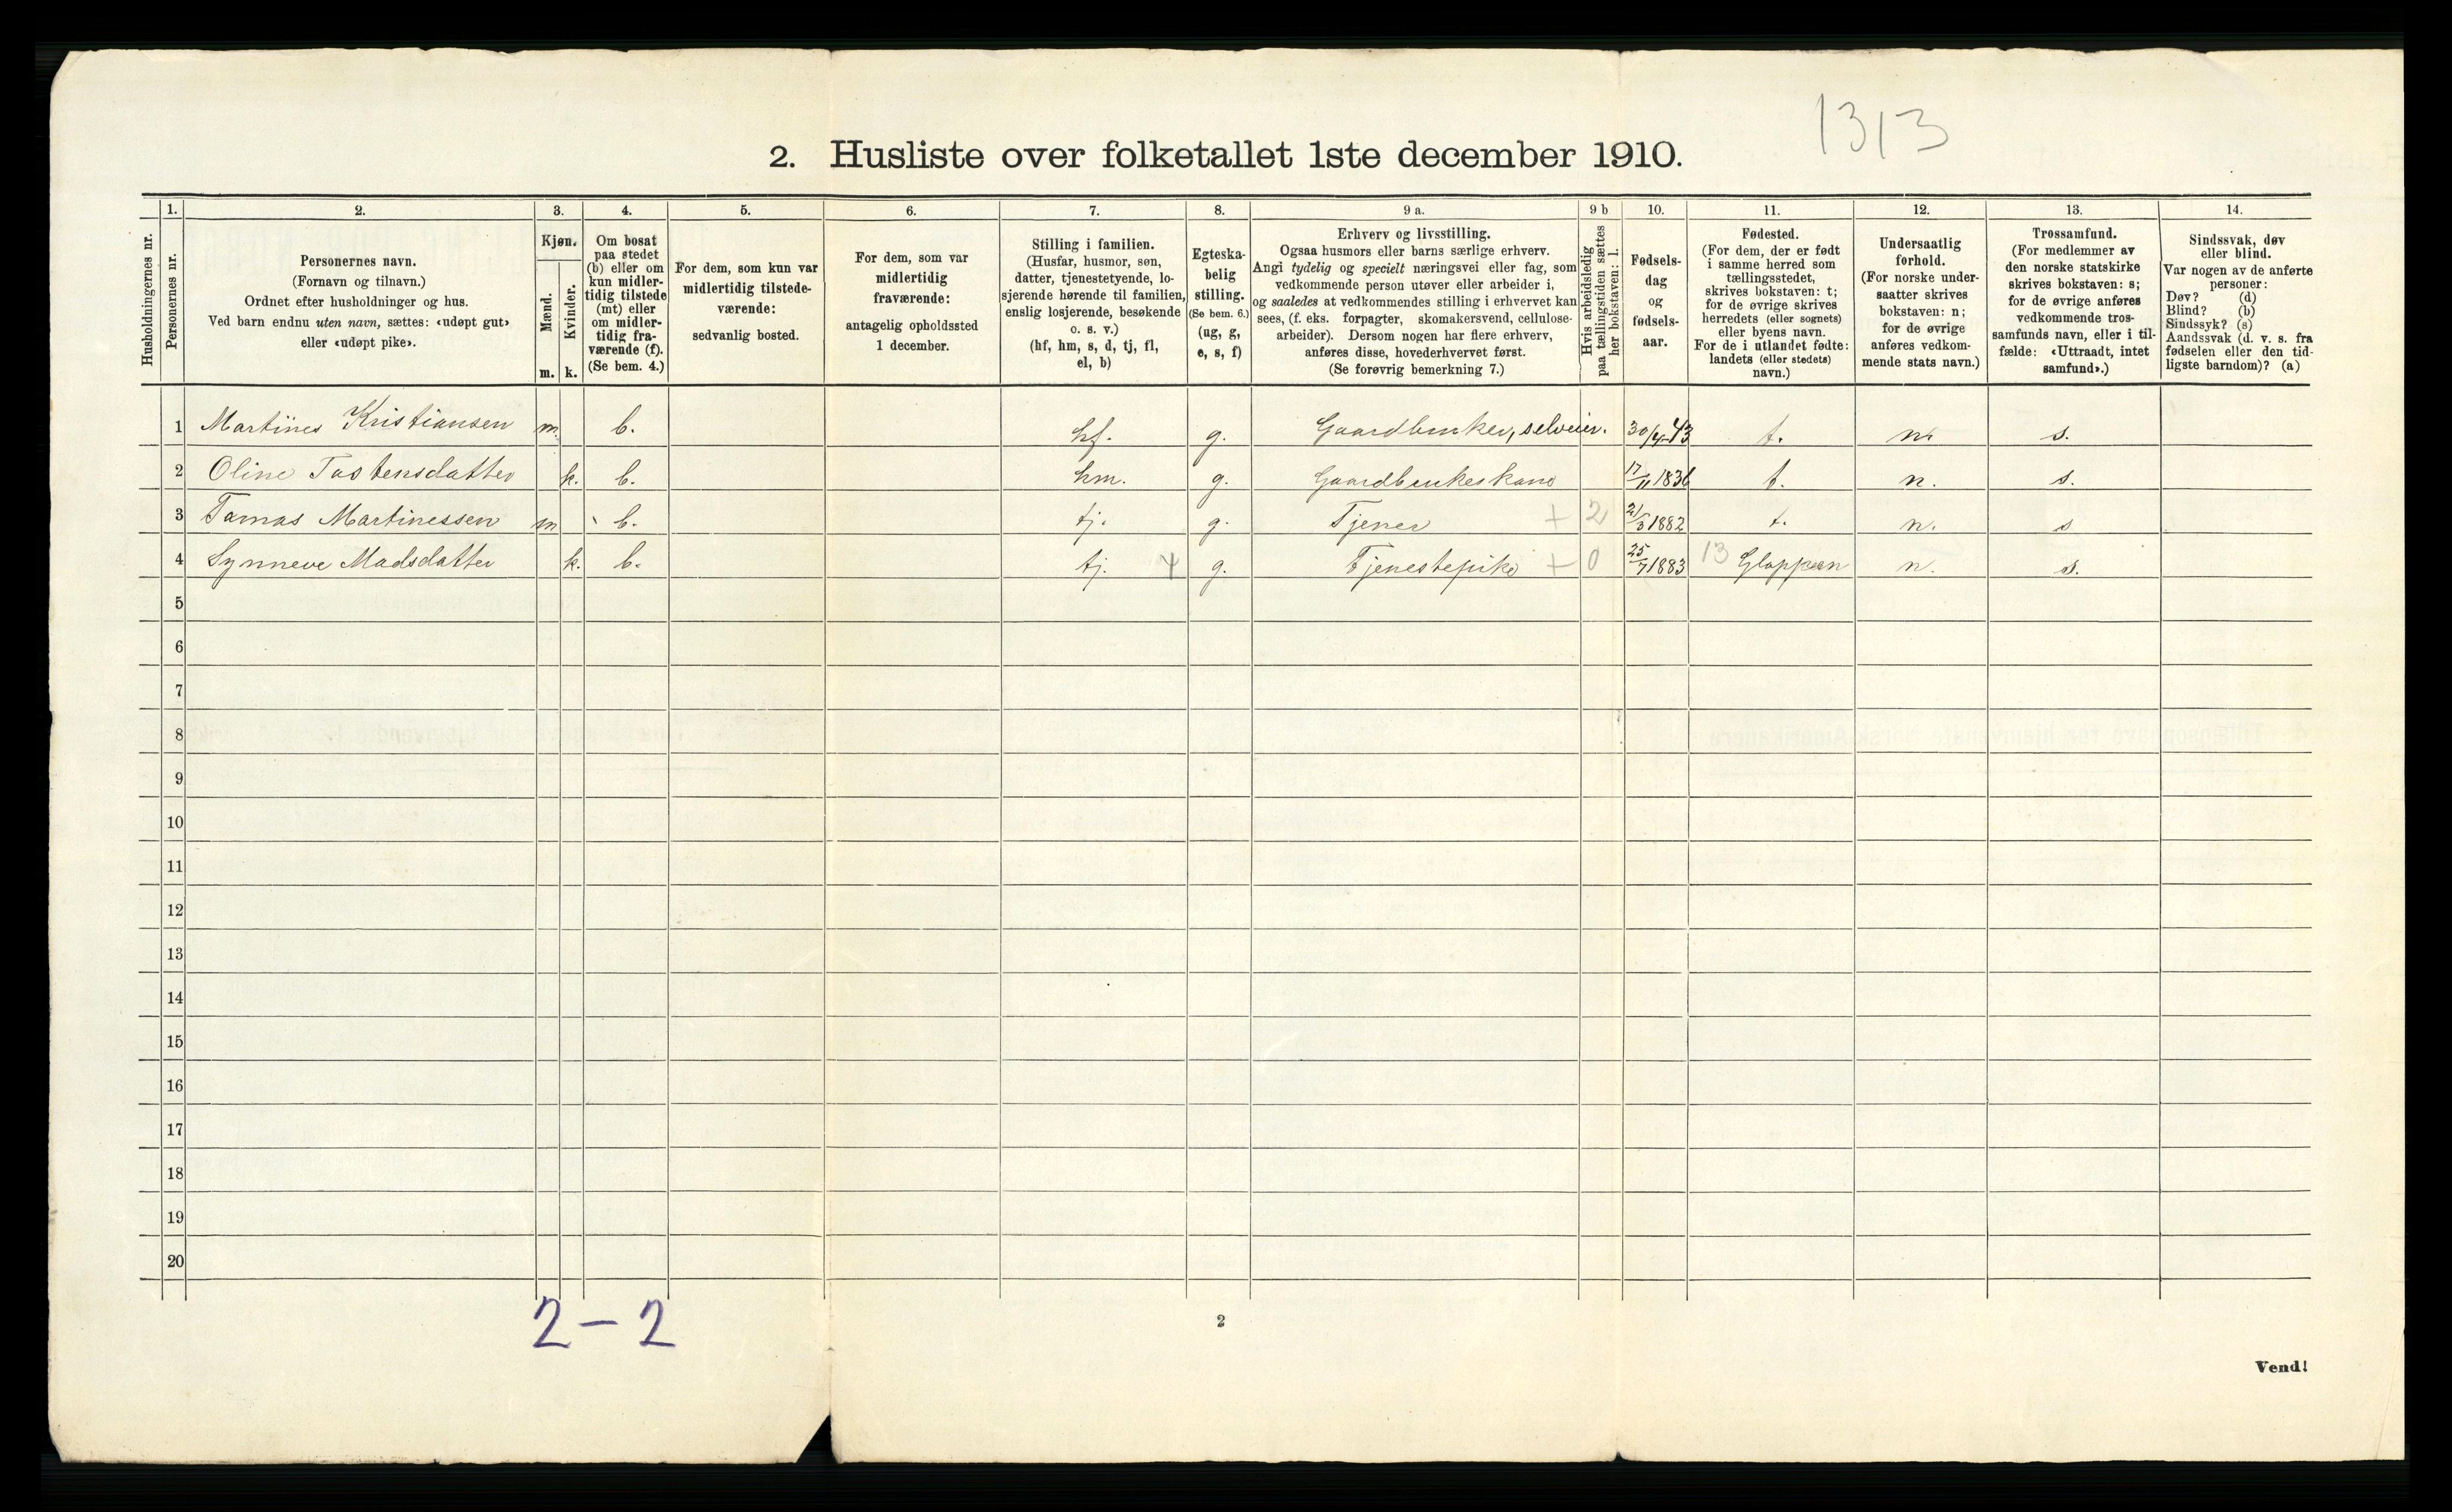 1313
2. Husliste over folketallet 1ste december 1910.
Husholdningernes nr.
1.
Personernes nr.
2.
Personernes navn.
(Fornavn og tilnavn.)
Ordnet efter husholdninger og hus.
Ved barn endnu uten navn, sættes: «udøpt gut»
eller «udøpt pike».
3.
Kjøn.
Mænd.
Kvinder.
m. k.
4.
Om bosat
paa stedet
(b) eller om
kun midler-
tidig tilstede
(mt) eller
om midler-
tidig fra-
værende (f).
(Se bem. 4.)
5.
For dem, som kun var
midlertidig tilstede-
værende:
sedvanlig bosted.
6.
For dem, som var
midlertidig
fraværende:
antagelig opholdssted
1 december.
7.
Stilling i familien.
(Husfar, husmor, søn,
datter, tjenestetyende, lo-
sjerende hørende til familien,
enslig losjerende, besøkende
o. s. v.)
(hf, hm, s, d, tj, fl,
el, b)
8.
Egteska-
belig
stilling.
(Se bem. 6.)
(ug, g,
e, s, f)
9 a.
Erhverv og livsstilling.
Ogsaa husmors eller barns særlige erhverv.
Angi tydelig og specielt næringsvei eller fag, som
vedkommende person utøver eller arbeider i,
og saaledes at vedkommendes stilling i erhvervet kan
sees, (f. eks. forpagter, skomakersvend, cellulose-
arbeider). Dersom nogen har flere erhverv,
anføres disse, hovederhvervet først.
(Se forøvrig bemerkning 7.)
9 b
Hvis arbeidsledig
paa tællingstiden sættes
her bokstaven: l.
10.
Fødsels-
dag
og
fødsels-
aar.
11.
Fødested.
(For dem, der er født
i samme herred som
tællingsstedet,
skrives bokstaven: t;
for de øvrige skrives
herredets (eller sognets)
eller byens navn.
For de i utlandet fødte:
landets (eller stedets)
navn.)
12.
Undersaatlig
forhold.
(For norske under-
saatter skrives
bokstaven: n;
for de øvrige
anføres vedkom-
mende stats navn.)
13.
Trossamfund.
(For medlemmer av
den norske statskirke
skrives bokstaven: s;
for de øvrige anføres
vedkommende tros-
samfunds navn, eller i til-
fælde: «Uttraadt, intet
samfund».)
14.
Sindssvak, døv
eller blind.
Var nogen av de anførte
personer:
Døv? (d)
Blind? (b)
Sindssyk? (s)
Aandssvak (d. v. s. fra
fødselen eller den tid-
ligste barndom)? (a)
1 Martines Kristiansen m b. hf. g. Gaardbruker, selveier. 30/4-43 t. n. s.
2 Oline Tostensdatter k. b. hm. g. Gaardbrukeskone 17/11 1836 t. n. s.
3 Tomas Martinessen m b. tj. g. Tjener + 2 21/3 1882 t. n. s
4 Synneve Madsdatter k. b. tj. 4 g. Tjenestepike + 0 25/7 1883 13 Gloppen n. s.
5
6
7
8
9
10
11
12
13
14
15
16
17
18
19
20
2-2
2
Vend!